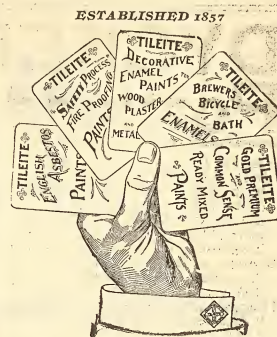 ESTABLISHED 1857
TILEITE
ENGLISH
ASBESTOS
PAINTS
TILEITE
SATIN PROCESS
FIRE PROOFING
PAINTS
TILEITE
DECORATIVE
ENAMEL
PAINTS FOR
WOOD
PLASTER
AND
METAL
TILEITE
BREWERS
BICYCLE
AND
BATH
ENAMEL
TILEITE
GOLD PREMIUM
COMMON SENSE
READY MIXED
PAINTS